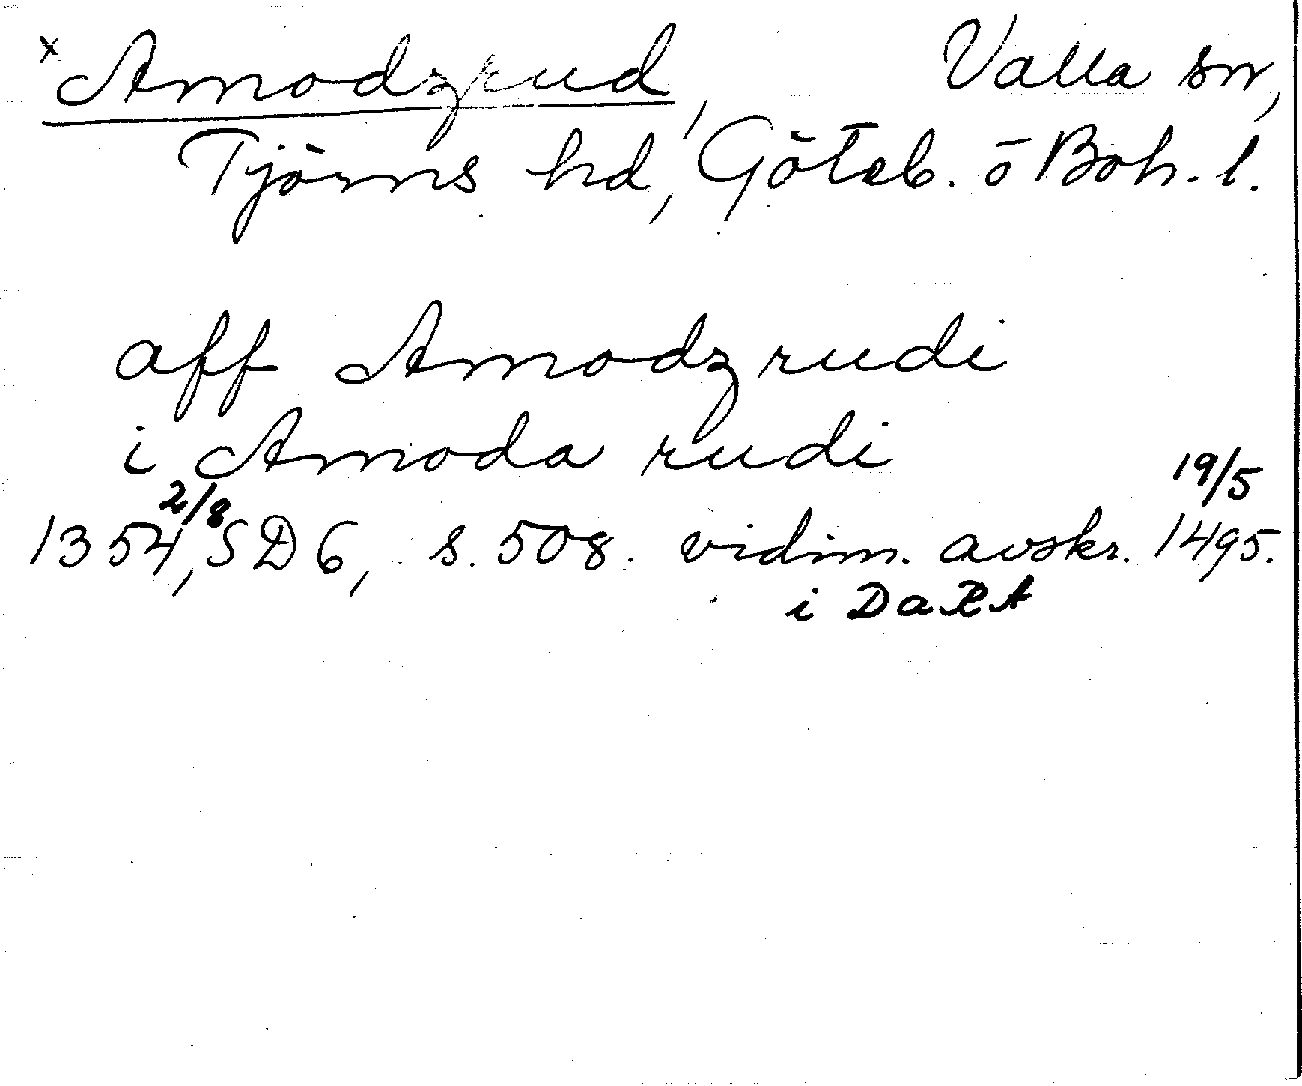 x Amodzrud, Valla sn,
Tjörns hd, Göteb. o Boh. l.
aff Amodzrudi
i Amoda rudi
1354 2/8, SD 6, s. 508. vidim. avskr. 19/5 1495.
i DaRA